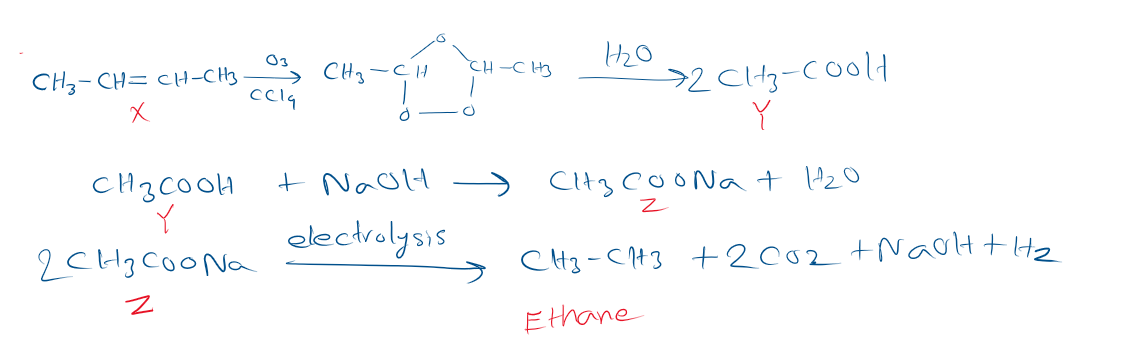 CH3-CH=CH-CH3 O3 CCl4 → CH3-CH O CH-CH3 O-O H2O → 2 CH3-COOH
X Y
CH3COOH + NaOH → CH3COONa + H2O
Y Z
2CH3COONa electrolysis → CH3-CH3 + 2CO2 + NaOH + H2
Z Ethane